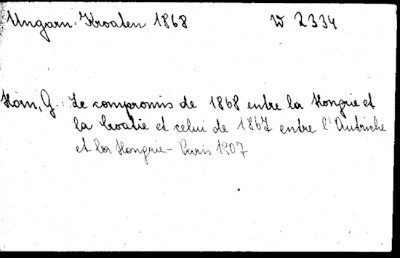 Ungarn. Kroaten 1868 W 2334
Horn, G. Le compromis de 1868 entre la Hongrie et
la Croatie et celui de 1867 entre l'Autriche
et la Hongrie - Paris 1907